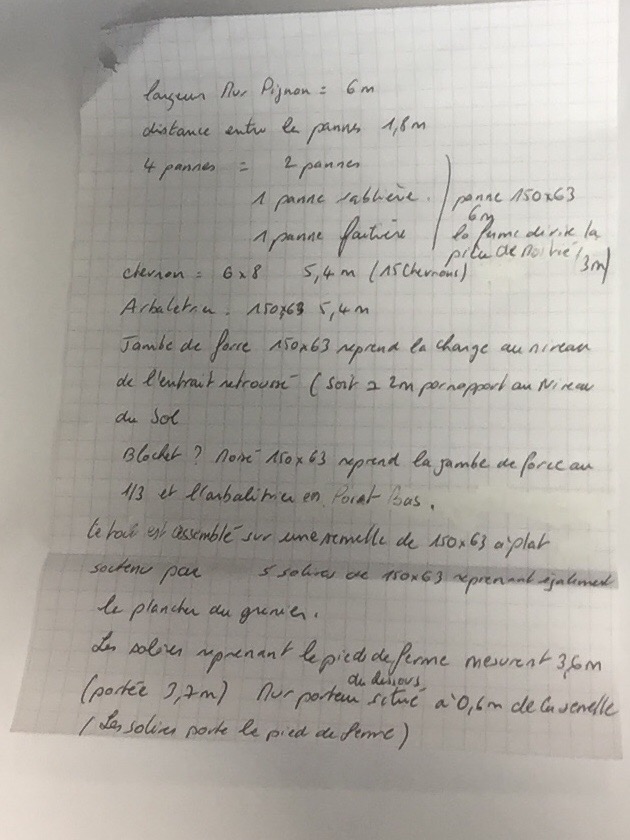 largeur Mur Pignon = 6m
distance entre les pannes 1,8m
4 pannes = 2 pannes
1 panne sablière. panne 150x63
6m
1 panne faitière la ferme divise la
de moitié (3m)
chevron = 6x8 5,4m (15 Chevrons)
Arbaletrier. 150x63 5,4m
Jambe de force 150x63 reprend la charge au niveau
de l'entrait retroussé (soit à 2m par rapport au Niveau
du Sol
Blochet ? Moisé 150x63 reprend la jambe de force au
1/3 et l'arbalétrier en Point Bas.
Le tout est assemblé sur une semelle de 150x63 à plat
soutenu par 5 solives de 150x63 reprenant également
le plancher du grenier.
Les solives reprenant le pied de ferme mesurent 3,6m
du dessous
(portée 3,7m) Mur porteur situé à 0,6m de la semelle
(Les solives porte le pied de ferme)